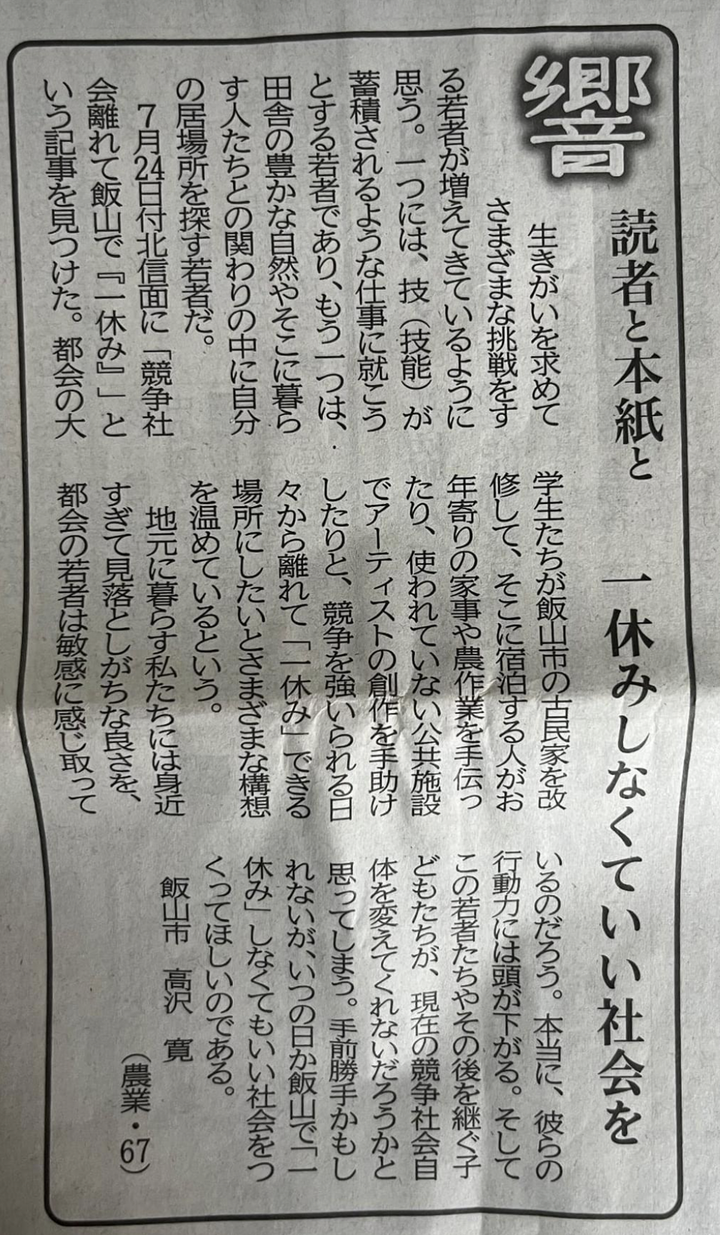 響
読者と本紙と
一休みしなくていい社会を
生きがいを求めて
さまざまな挑戦をす
る若者が増えてきているように
思う。一つには、技（技能）が
蓄積されるような仕事に就こう
とする若者であり、もう一つは、
田舎の豊かな自然やそこに暮ら
す人たちとの関わりの中に自分
の居場所を探す若者だ。
7月24日付北信面に「競争社
会離れて飯山で『一休み』」と
いう記事を見つけた。都会の大
学生たちが飯山市の古民家を改
修して、そこに宿泊する人がお
年寄りの家事や農作業を手伝っ
たり、使われていない公共施設
でアーティストの創作を手助け
したりと、競争を強いられる日
々から離れて「一休み」できる
場所にしたいとさまざまな構想
を温めているという。
地元に暮らす私たちには身近
すぎて見落としがちな良さを、
都会の若者は敏感に感じ取って
いるのだろう。本当に、彼らの
行動力には頭が下がる。そして
この若者たちやその後を継ぐ子
どもたちが、現在の競争社会自
体を変えてくれないだろうかと
思ってしまう。手前勝手かもし
れないが、いつの日か飯山で「一
休み」しなくてもいい社会をつ
くってほしいのである。
飯山市　高沢　寛
（農業・67）